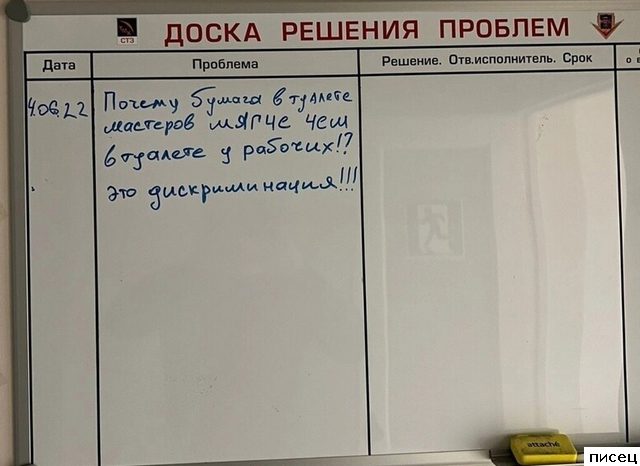 СТЗ
ДОСКА РЕШЕНИЯ ПРОБЛЕМ
Дата
Проблема
Решение. Отв.исполнитель. Срок
4.06.22
Почему бумага в туалете
мастеров мягче чем
в туалете у рабочих!?
это дискриминация!!!
attaché
писец